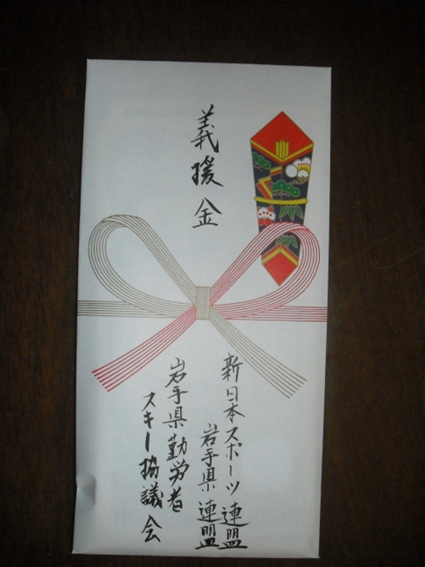 義援金
新日本スポーツ連盟
岩手県連盟
岩手県勤労者
スキー協議会